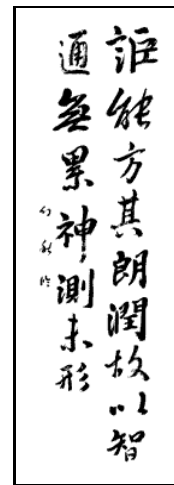 詎能方其朗潤故以智
通無累神測未形